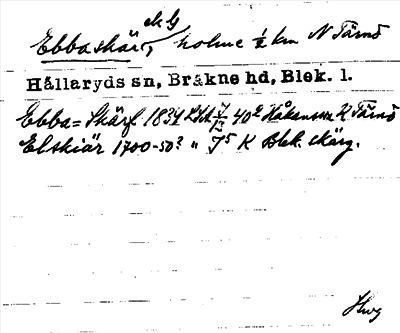 ek G
Ebbaskär, holme ½ km N Tärnö
Hällaryds sn, Bräkne hd, Blek. l.
Ebba=Skärf 1834 40² Håkansson K Tärnö
Elskiär 1700-50? " J⁵ K Blek. skärg.
Hwg